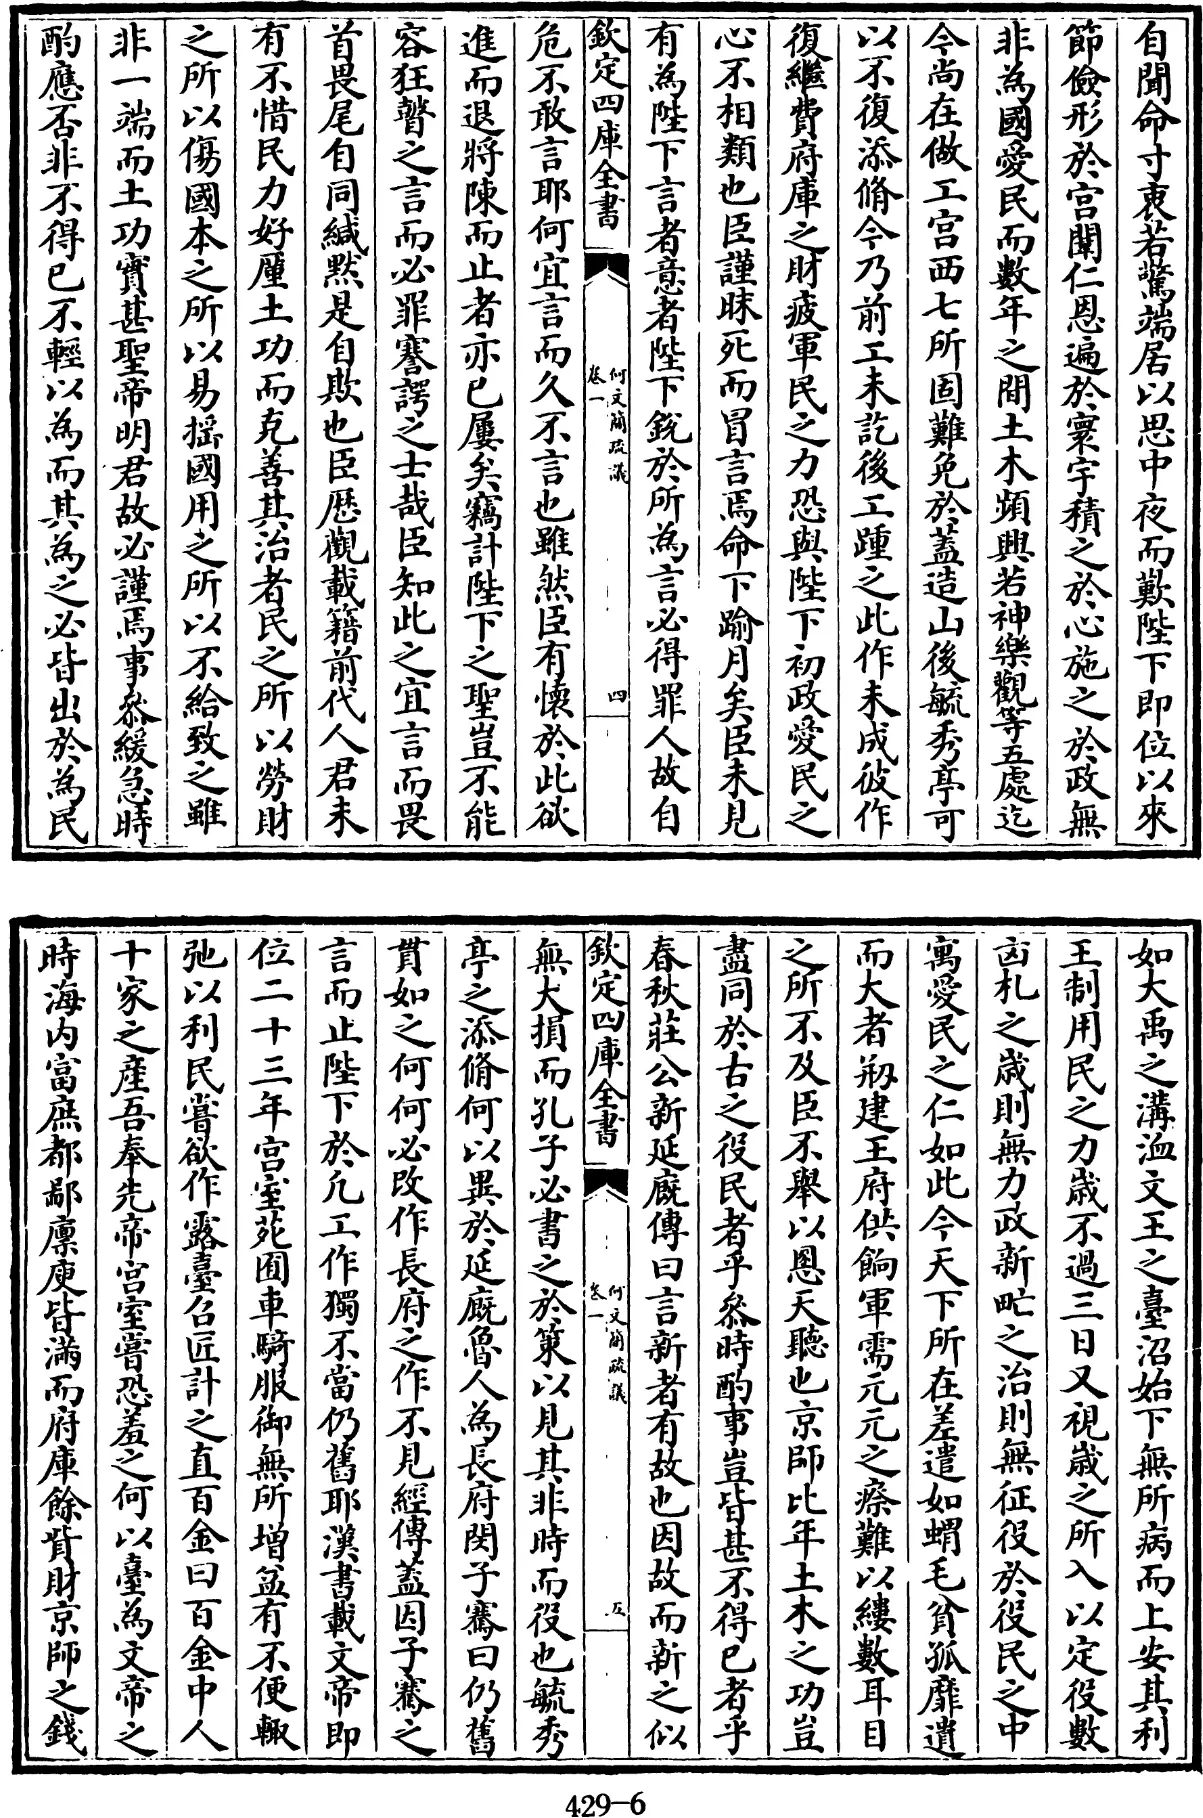 自聞命寸衷若驚端居以思中夜而歎陛下即位以來
節儉形於宫闈仁恩遍於寰宇積之於心施之於政無
非為國愛民而數年之間土木頻興若神樂觀等五處迄
今尚在做工宫西七所固難免於蓋造山後毓秀亭可
以不復添脩今乃前工未訖後工踵之此作未成彼作
復繼費府庫之財疲軍民之力恐與陛下初政愛民之
心不相類也臣謹昧死而冒言焉命下踰月矣臣未見
有為陛下言者意者陛下銳於所為言必得罪人故自
欽定四庫全書
何文簡疏議
卷一
四
危不敢言耶何宜言而久不言也雖然臣有懷於此欲
進而退將陳而止者亦已屢矣竊計陛下之聖豈不能
容狂瞽之言而必罪謇諤之士哉臣知此之宜言而畏
首畏尾自同緘默是自欺也臣歴觀載籍前代人君未
有不惜民力好厪土功而克善其治者民之所以勞財
之所以傷國本之所以易揺國用之所以不給致之雖
非一端而土功實甚聖帝明君故必謹焉事叅緩急時
酌應否非不得已不輕以為而其為之必皆出於為民
如大禹之溝洫文王之臺沼始下無所病而上安其利
王制用民之力歳不過三日又視歳之所入以定役數
凶札之歳則無力政新甿之治則無征役於役民之中
寓愛民之仁如此今天下所在差遣如蝟毛貧孤靡遺
而大者剏建王府供餉軍需元元之瘵難以縷數耳目
之所不及臣不舉以恩天聽也京師比年土木之功豈
盡同於古之役民者乎叅時酌事豈皆甚不得已者乎
春秋莊公新延廐傳曰言新者有故也因故而新之似
欽定四庫全書
何文簡疏議
卷一
五
無大損而孔子必書之於策以見其非時而役也毓秀
亭之添脩何以異於延廐魯人為長府閔子騫曰仍舊
貫如之何何必改作長府之作不見經傳蓋因子騫之
言而止陛下於凢工作獨不當仍舊耶漢書載文帝即
位二十三年宫室苑囿車騎服御無所增益有不便輙
弛以利民嘗欲作露臺召匠計之直百金曰百金中人
十家之産吾奉先帝宫室嘗恐羞之何以臺為文帝之
時海内富庶都鄙廪庾皆滿而府庫餘貲財京師之錢
429-6